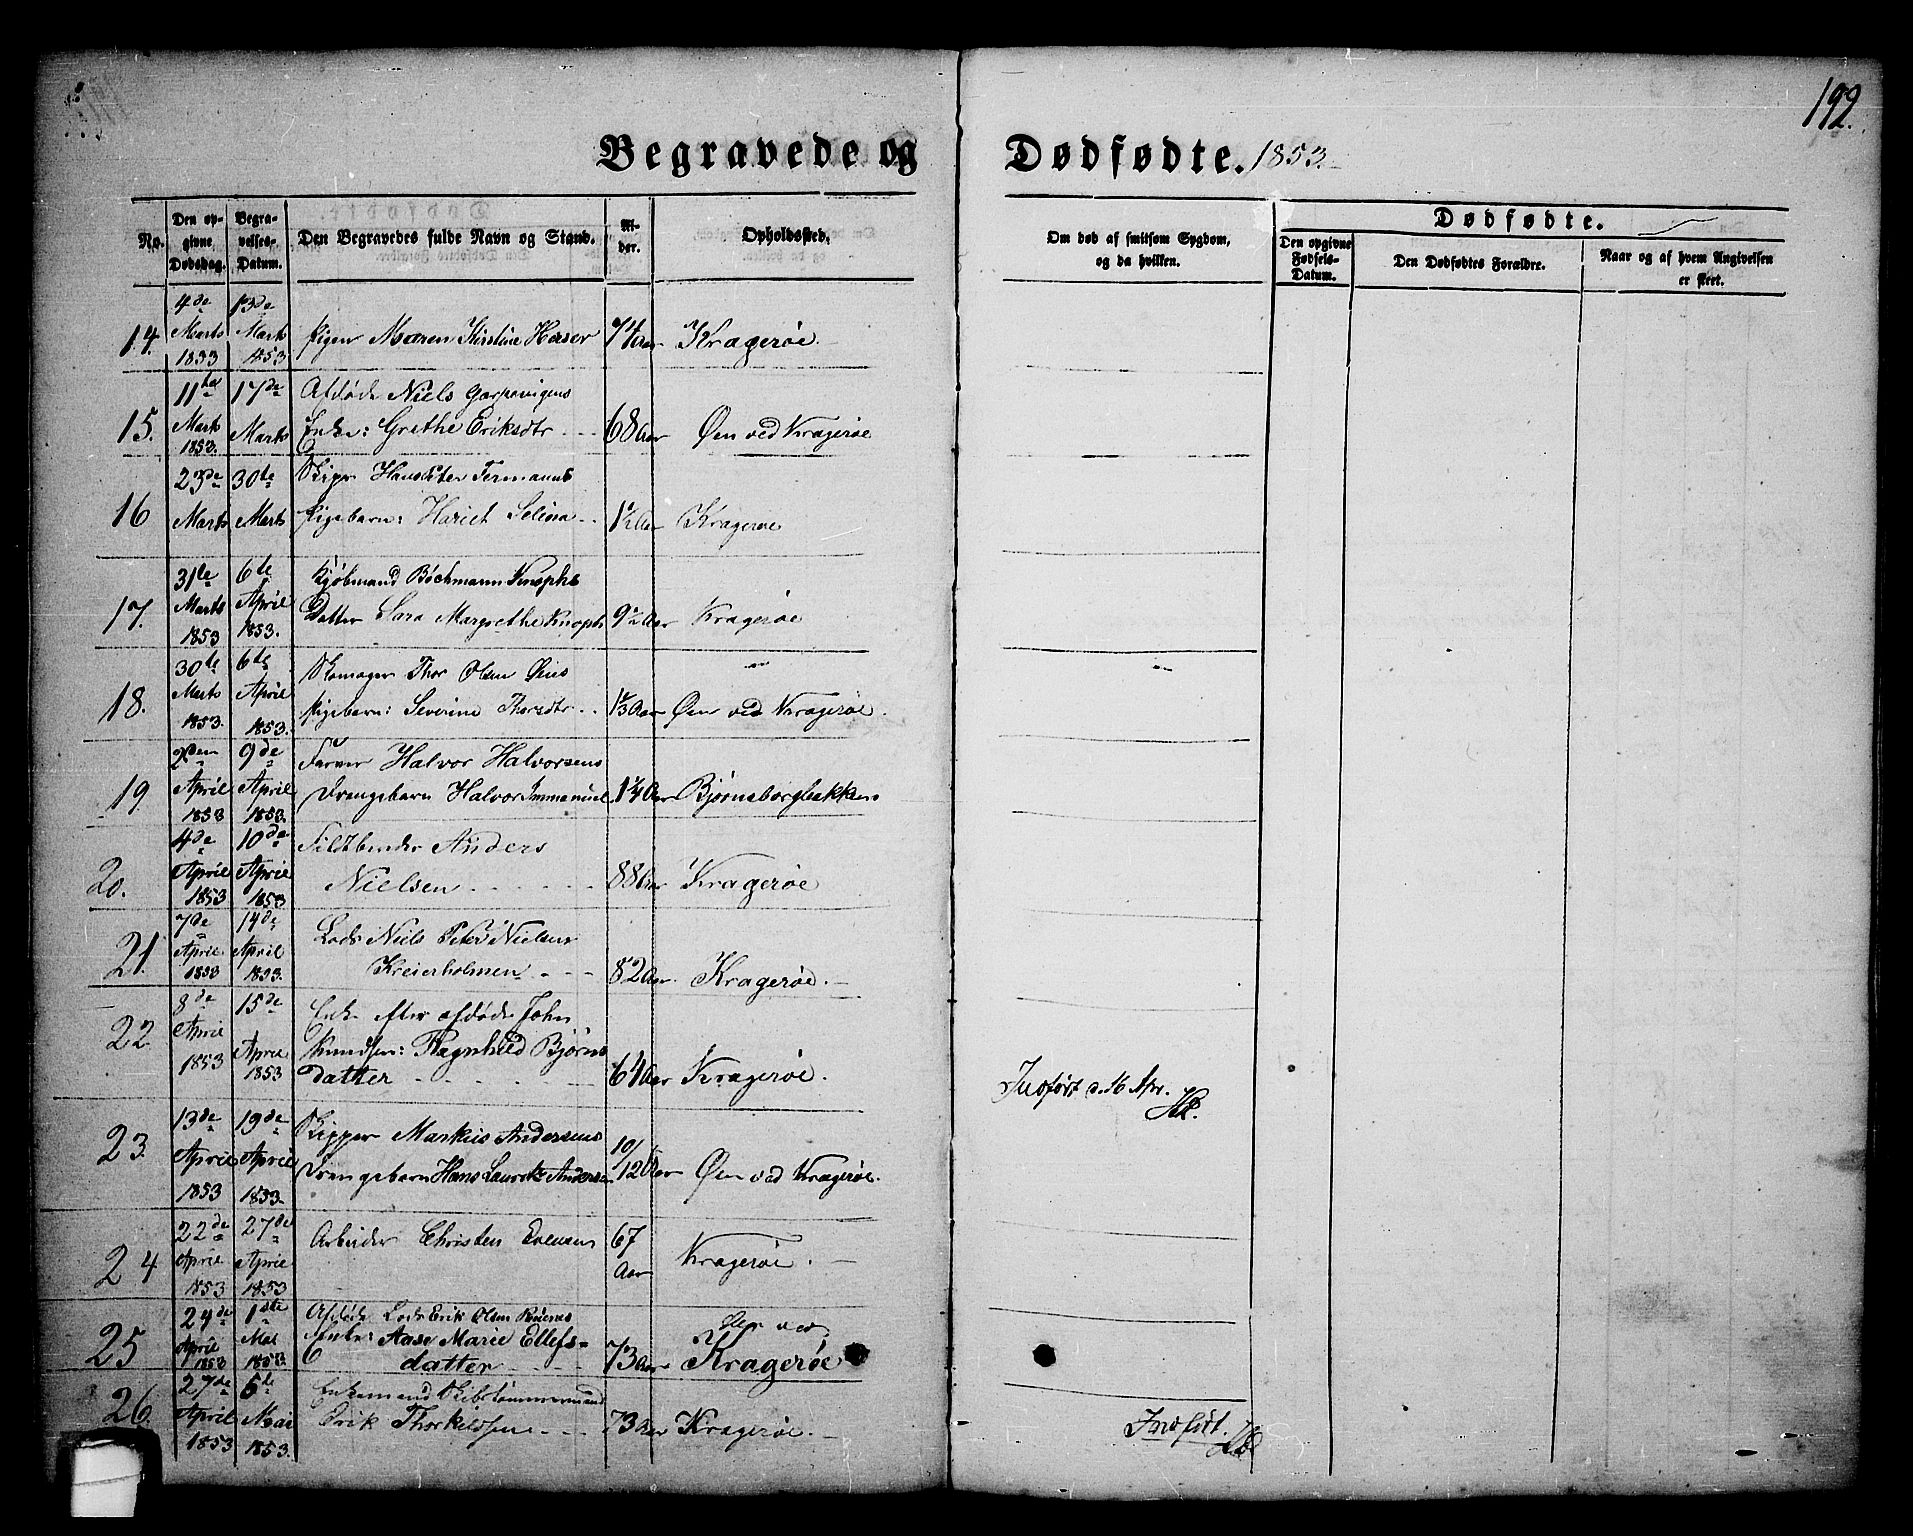 192.
Begravede og Dødfødte. 1853.
No.
Den opgivne Dødsdag.
Begravelses-Datum.
Den Begravedes fulde Navn og Stand.
Alder.
Opholdssted.
Om død af smitsom Sygdom, og da hvilken.
Dødfødte.
Den opgivne Fødsels-Datum.
Den Dødfødtes Forældre.
Naar og af hvem Angivelsen er skeet.
14. 4de Marts 1853 13de Marts 1853 Pigen Maren Kirstine 74 Aar Kragerøe.
15. 11te Marts 1853. 17de Marts Afdøde Niels
Enke: Grethe Eriksdtr 68 Aar Øen ved Kragerøe
16 23de Marts 30te Marts Skipr Hans Peter
Pigebarn: Hariet Selina 1½ Aar Kragerøe
17. 31te Marts 1853 6te April 1853. Kjøbmand Bochmann Knophs
Datter Sara Margrethe Knoph 9½ Aar Kragerøe
18. 30te Marts 1853. 6te April 1853. Skomager Thor Olsen Øens
Pigebarn: Severine Thorsdtr 1⅓ Aar Øen ved Kragerøe.
19 2den April 1853 9de April 1853. Farver Halvor Halvorsens
Drengebarn Halvor Immanuel 1¼ Aar Bjørnsborgbakken
20. 4de April 1853 10de April 1853 Anders
Nielsen 88 Aar Kragerøe
21. 7de April 1853 14de April 1853. Lods Niels Peter Nielsen
Kreierholmen 82 Aar. Kragerøe.
22. 8de April 1853 15de April 1853 Enke efter afdøde John
Knudsen: Ragnhild Bjørns
datter 61 Aar Kragerøe. Indført d. 16 Apr.
23. 13de April 1853 19de April 1853. Skipper Markus Andersens
Drengebarn Hans Lauritz Andersen 10/12 Aar Øen ved Kragerøe.
24 22de April 1853 27de April 1853 Arbeider Christen Evensen 67 Aar Kragerøe.
25 24de April 1853 1ste Mai 1853. Afdøde Lods Erik Olsen
Enke: Aase Marie Ellefs-
datter 73 Aar Kragerøe
26. 27de April 1853 5te Mai 1853. Enkemand Skibstømmermand
Erik Thorkildsen 73 Aar Kragerøe. Indført.